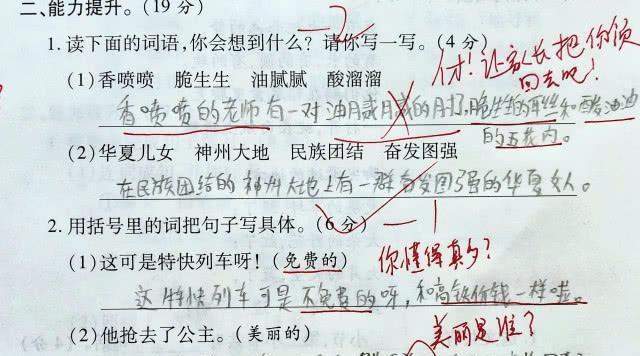 二、能力提升。(19 分)
1. 读下面的词语,你会想到什么? 请你写一写。(4 分)
(1)香喷喷 脆生生 油腻腻 酸溜溜
香喷喷的老师有一对油腻腻的
让家长把你领
回去吧!
的五花肉。
(2)华夏儿女 神州大地 民族团结 奋发图强
在民族团结的神州大地上有一群奋发图强的华夏女人。
2. 用括号里的词把句子写具体。(6 分) —1
(1)这可是特快列车呀! (免费的) 你懂得真多?
这特快列车可是不免费的呀,和高铁价钱一样啦。
(2)他抢去了公主。(美丽的) 美丽是谁?